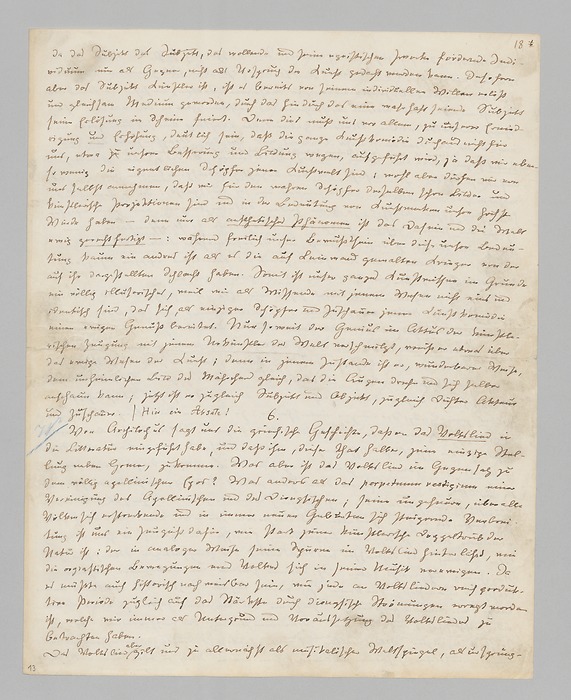 da das Subjekt das Subjekt, das wollende und seine egoistischen Zwecke fördernde Indi-
viduum nur als Gegner, nicht als Ursprung der Kunst gedacht werden kann. Insofern
aber das Subjekt Künstler ist, ist es bereits von seinem individuellen Willen erlöst
und gleichsam Medium geworden, durch das hindurch das eine wahrhaft seiende Subjekt
seine Erlösung im Scheine feiert. Denn dies muß uns vor allem, zu unserer Ernied-
rigung und Erhöhung, deutlich sein, daß die ganze Kunstkomödie durchaus nicht für
uns, etwa zu unsrer Besserung und Bildung wegen, aufgeführt wird, ja daß wir eben-
sowenig die eigentlichen Schöpfer jener Kunstwelt sind; wohl aber dürfen wir von
uns selbst annehmen, daß wir für den wahren Schöpfer derselben schon Bilder und
künstlerische Projektionen sind und in der Bedeutung von Kunstwerken unsre höchste
Würde haben — denn nur als aesthetisches Phänomen ist das Dasein und die Welt
ewig gerechtfertigt —: während freilich unser Bewußtsein über diese unsre Bedeu-
tung kaum ein andres ist als es die auf Leinwand gemalten Krieger von der
auf ihr dargestellten Schlacht haben. Somit ist unser ganzes Kunstwissen im Grunde
ein völlig illusorisches, weil wir als Wissende mit jenem Wesen nicht eins und
identisch sind, das sich als einziger Schöpfer und Zuschauer jener Kunstkomödie
einen ewigen Genuß bereitet. Nur soweit der Genius im Actus der künstle-
rischen Zeugung mit jenem Urkünstler der Welt verschmilzt, weiß er etwas über
das ewige Wesen der Kunst; denn in jenem Zustande ist er, wunderbarer Weise,
dem unheimlichen Bild des Mährchens gleich, das die Augen drehn und sich selber
anschaun kann; jetzt ist er zugleich Subjekt und Objekt, zugleich Dichter Acteur
und Zuschauer. | Hier ein Absatz!
6.
Von Archilochus sagt uns die griechische Geschichte, daß er das Volkslied in
die Litteratur eingeführt habe, und daß ihm, dieser That halber, jene einzige Stel-
lung neben Homer, zukomme. Was aber ist das Volkslied im Gegensatz zu
dem völlig apollinischen Epos? Was anders als das perpetuum vestigium einer
Vereinigung des Apollinischen und des Dionysischen; seine ungeheure, über alle
Völker sich erstreckende und in immer neuen Geburten sich steigernde Verbrei-
tung ist uns ein Zeugniß dafür, wie stark jener künstlerische Doppeltrieb der
Natur ist: der in analoger Weise seine Spuren im Volkslied hinterläßt, wie
die orgiastischen Bewegungen eines Volkes sich in seiner Musik verewigen. Ja
es müßte auch historisch nachweisbar sein, wie jede an Volksliedern reich produk-
tive Periode zugleich auf das Stärkste durch dionysische Strömungen erregt worden
ist, welche wir immer als Untergrund und Voraussetzung des Volksliedes zu
betrachten haben.
Das Volkslied aber gilt uns zu allernächst als musikalischer Weltspiegel, als ursprüng-
13